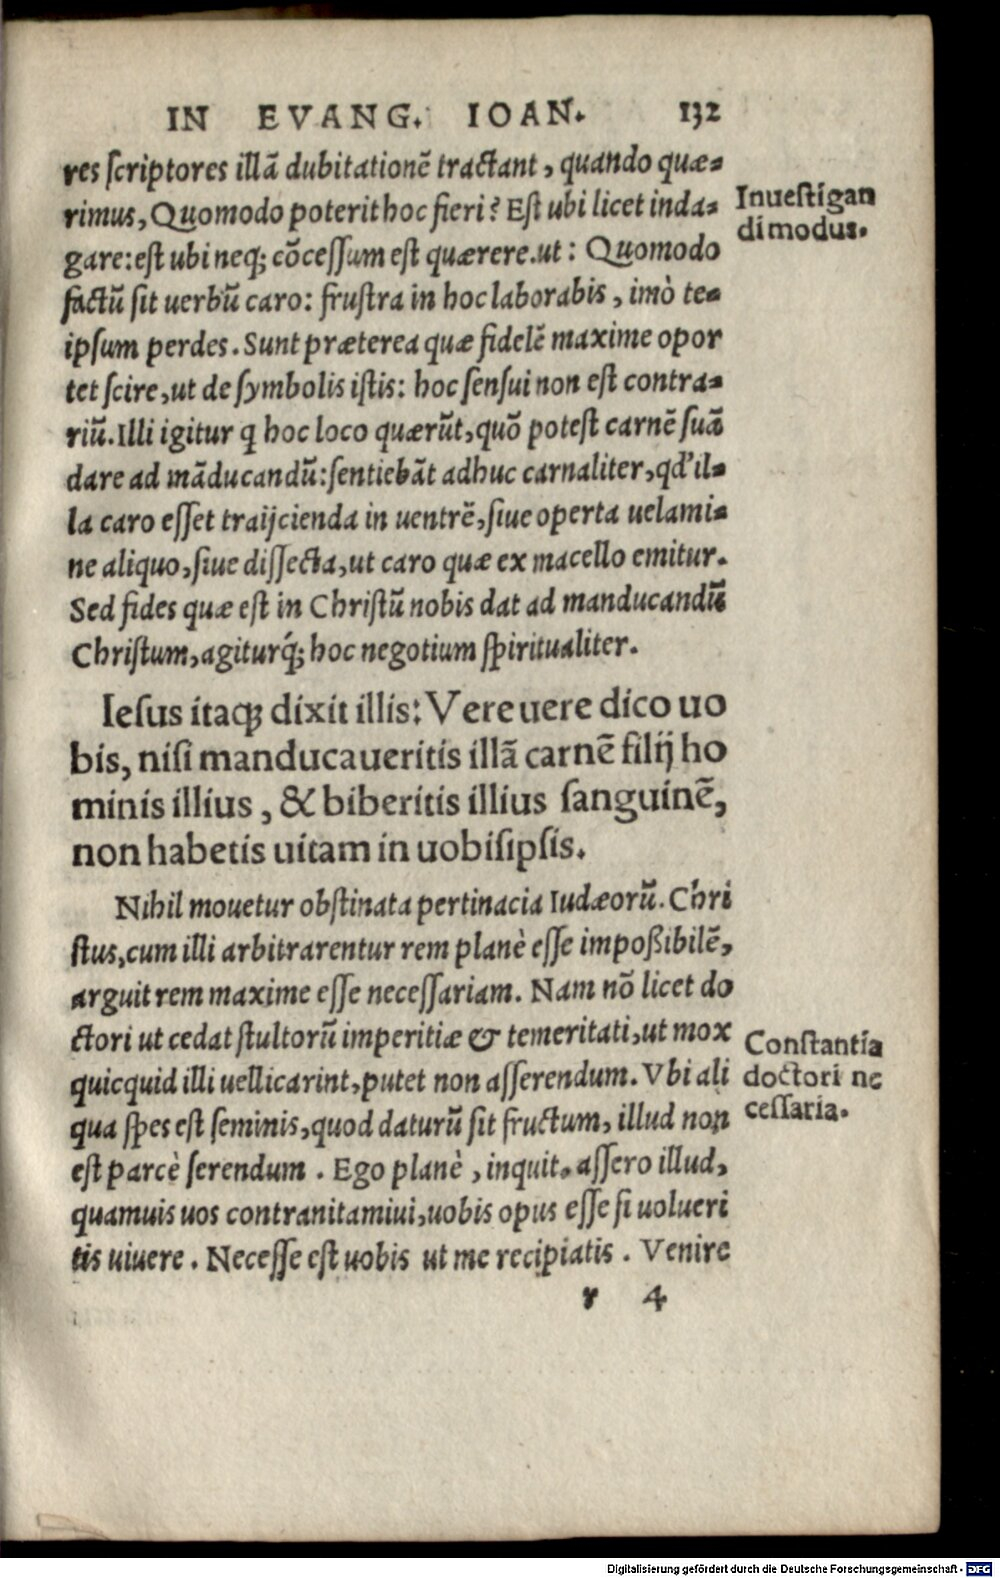 IN EVANG. IOAN. 132
res scriptores illã dubitationẽ tractant, quando quæ-
rimus, Quomodo poterit hoc fieri? Est ubi licet inda-
gare: est ubi neq; cõcessum est quærere. ut: Quomodo
factũ sit uerbũ caro: frustra in hoc laborabis, imò te-
ipsum perdes. Sunt præterea quæ fidelẽ maxime opor
tet scire, ut de symbolis istis: hoc sensui non est contra-
riũ. Illi igitur q hoc loco quærũt, quõ potest carnẽ suã
dare ad mãducandũ: sentiebãt adhuc carnaliter, qd' il-
la caro esset traijcienda in uentrẽ, siue operta uelami-
ne aliquo, siue dissecta, ut caro quæ ex macello emitur.
Sed fides quæ est in Christũ nobis dat ad manducandũ
Christum, agiturq́; hoc negotium spiritualiter.
Inuestigan
di modus.
Iesus itaq; dixit illis: Vere uere dico uo
bis, nisi manducaueritis illã carnẽ filij ho
minis illius, & biberitis illius sanguinẽ,
non habetis uitam in uobisipsis.
Nihil mouetur obstinata pertinacia Iudæorũ. Chri
stus, cum illi arbitrarentur rem planè esse impoßibilẽ,
arguit rem maxime esse necessariam. Nam nõ licet do
ctori ut cedat stultorũ imperitiæ & temeritati, ut mox
quicquid illi uellicarint, putet non asserendum. Vbi ali
qua spes est seminis, quod daturũ sit fructum, illud non
est parcè serendum. Ego planè, inquit. assero illud,
quamuis uos contranitamini, uobis opus esse si uolueri
tis uiuere. Necesse est uobis ut me recipiatis. Venire
Constantia
doctori ne
cessaria.
r 4
Digitalisierung gefördert durch die Deutsche Forschungsgemeinschaft - DFG